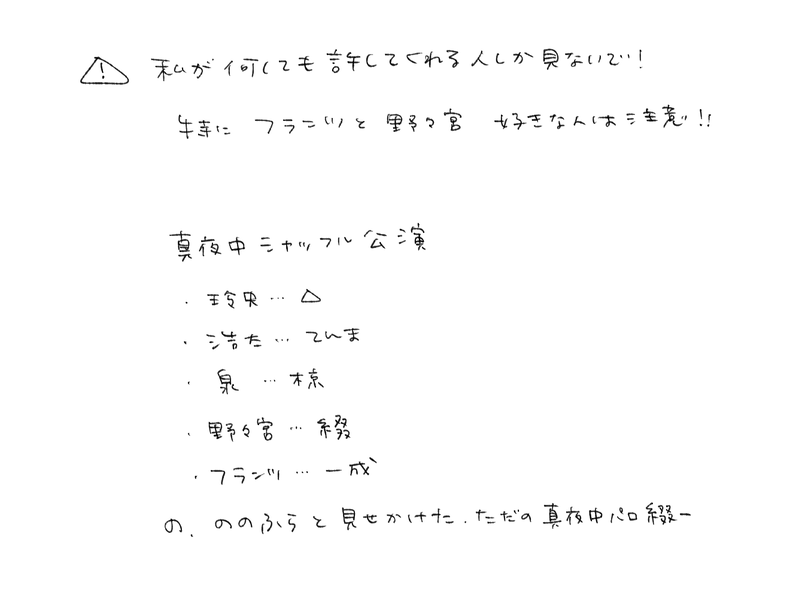 ⚠ 私が何しても許してくれる人しか見ないで!
特に フランツと野々宮 好きな人は注意!!
真夜中シャッフル公演
・玲央…△
・浩太…てんま
・泉…椋
・野々宮…綴
・フランツ…一成
の、ののふらと見せかけた、ただの真夜中パロ綴一